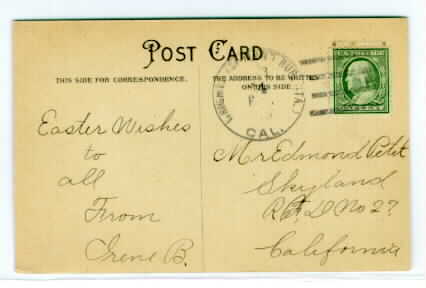 POST CARD
THIS SIDE FOR CORRESPONDENCE.
THE ADDRESS TO BE WRITTEN
ON THIS SIDE
CAL.
Easter Wishes
to
all
From
Irene B.
Mr Edmond Petit
Skyland
R.F.D No 27
California